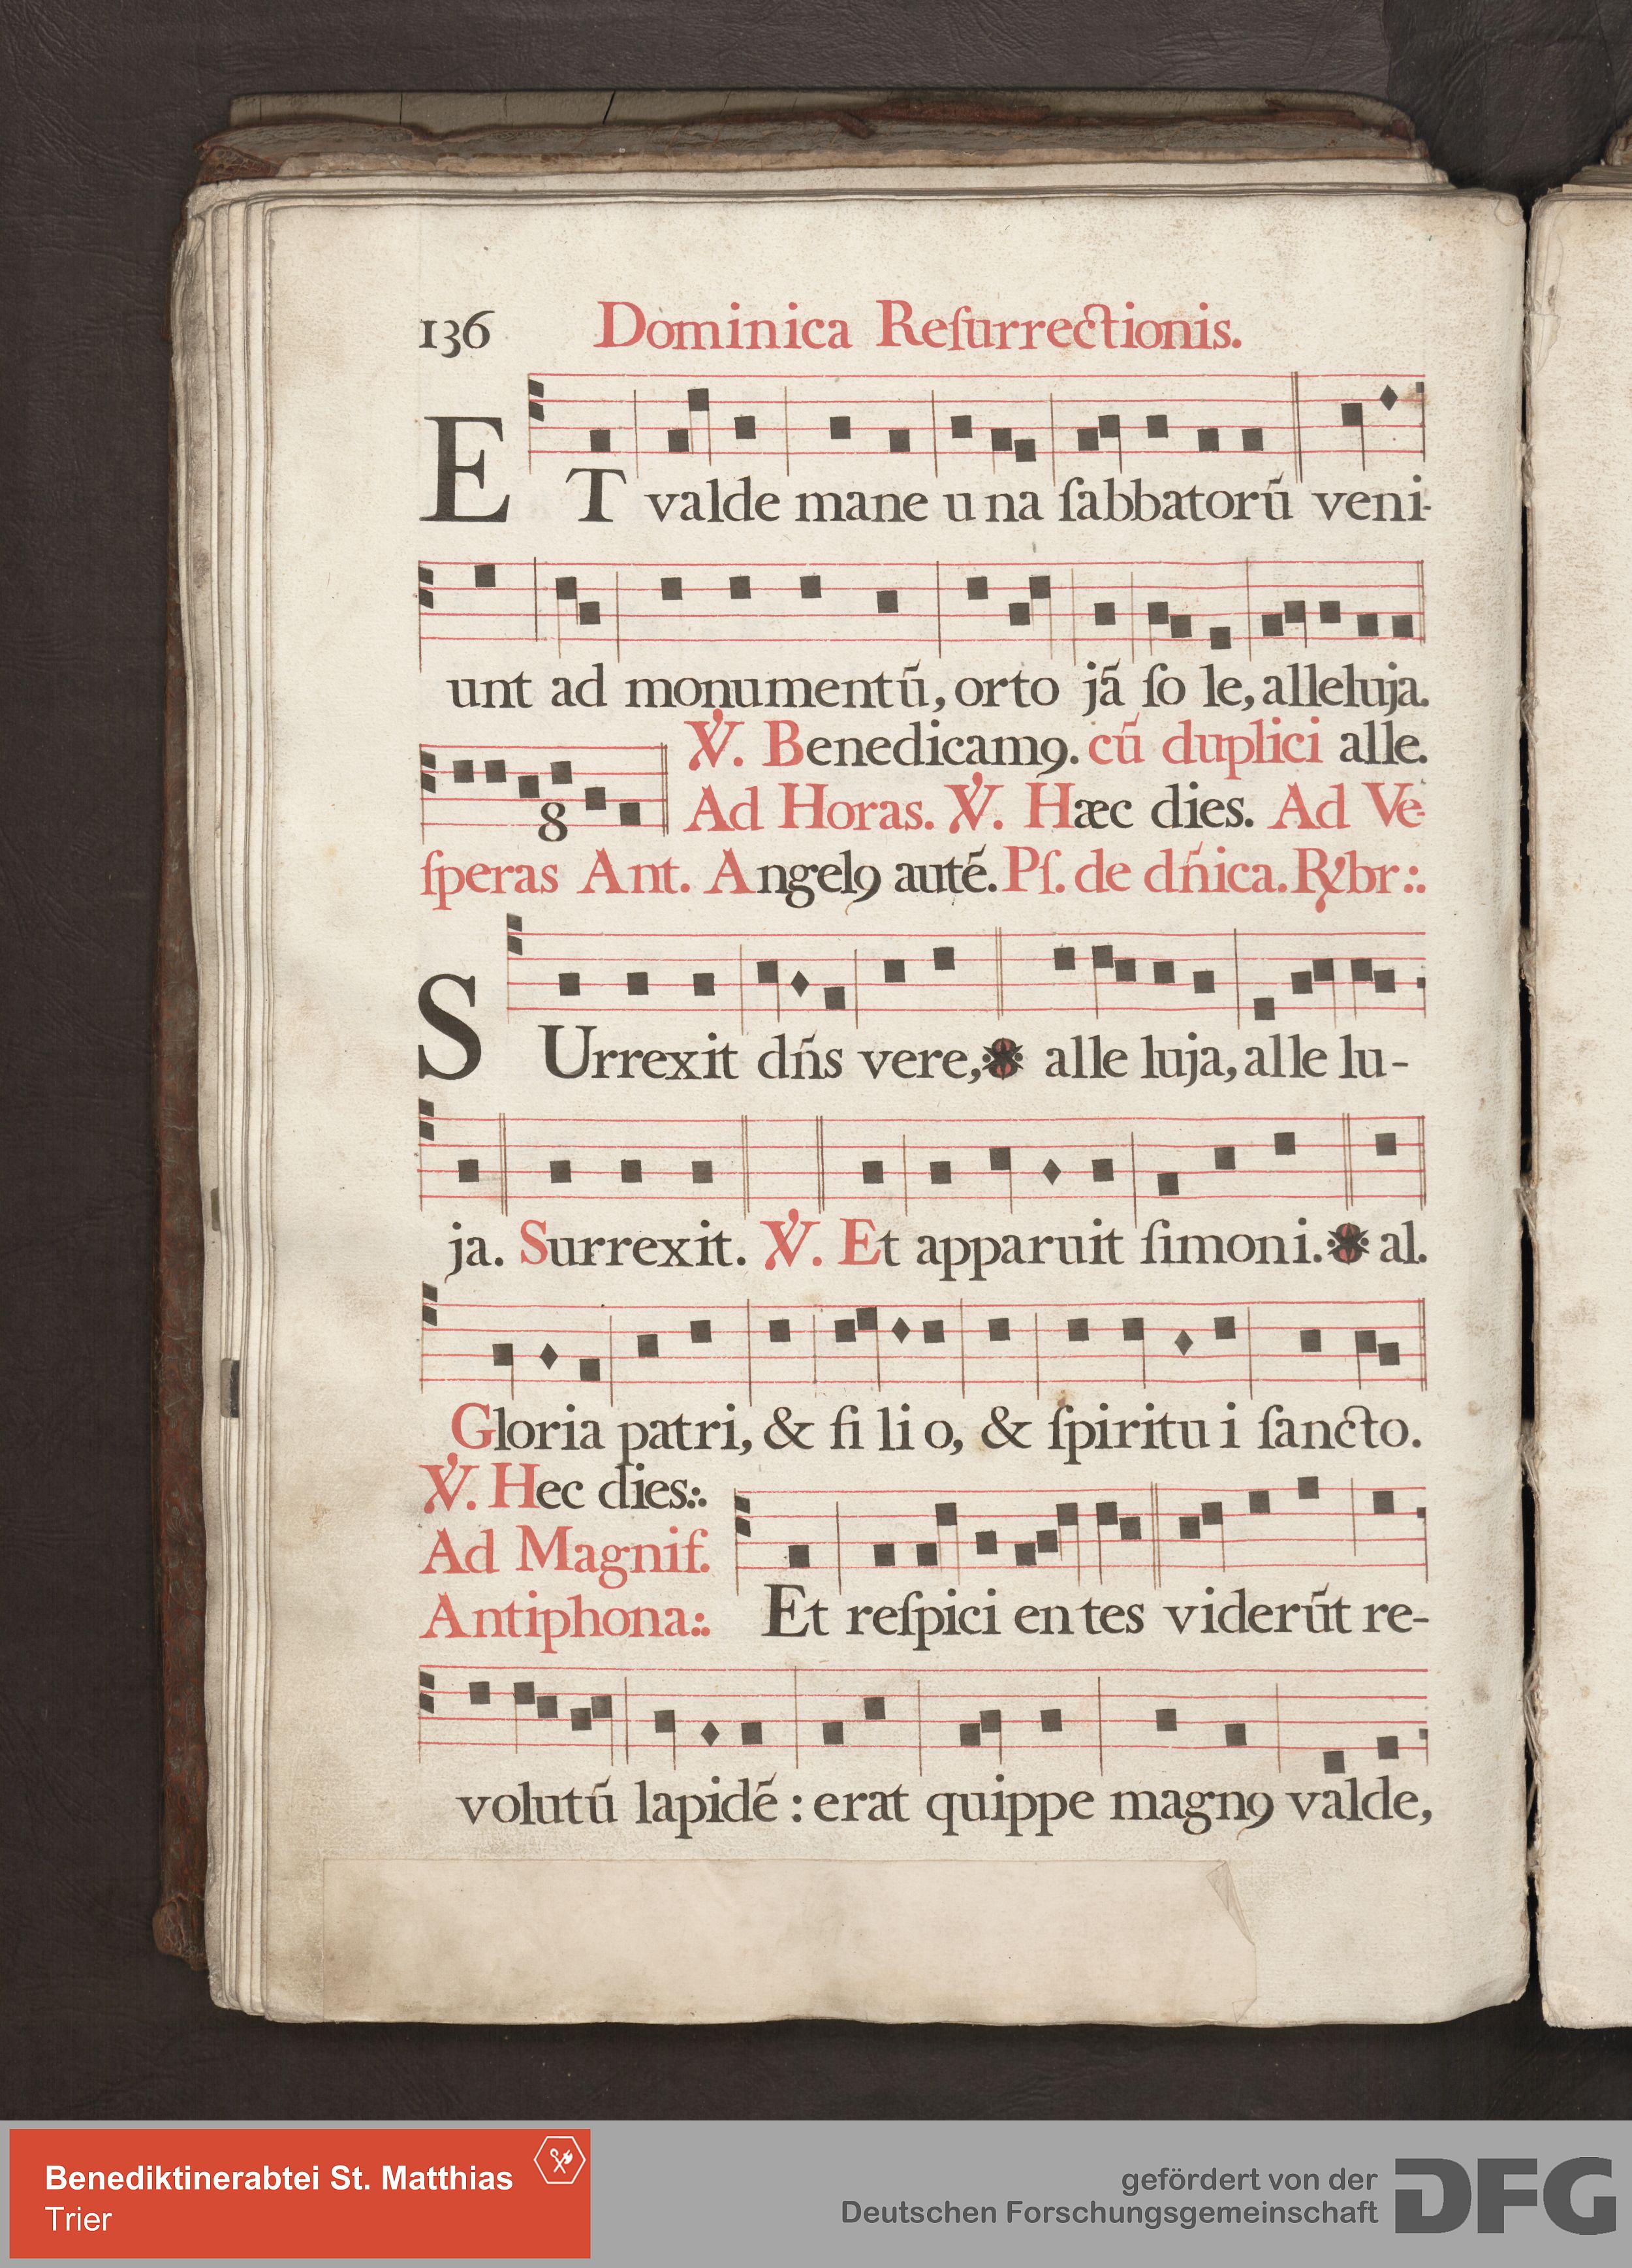 136 Dominica Reſurrectionis.
ET valde mane una ſabbatorũ veni-
unt ad monumentũ, orto jã ſo le, alleluja.
℣. Benedicamꝯ. cũ duplici alle.
8 Ad Horas. ℣. Hæc dies. Ad Ve-
ſperas Ant. Angelꝯ autẽ. Pſ. de dñica. ℟br:.
SUrrexit dñs vere, alle luja, alle lu-
ja. Surrexit. ℣. Et apparuit ſimoni. al.
Gloria patri, & fi li o, & ſpiritu i ſancto.
℣. Hec dies:.
Ad Magnif.
Antiphona:. Et reſpici en tes viderũt re-
volutũ lapidẽ : erat quippe magnꝯ valde,
Benediktinerabtei St. Matthias
Trier
gefördert von der
Deutschen Forschungsgemeinschaft DFG